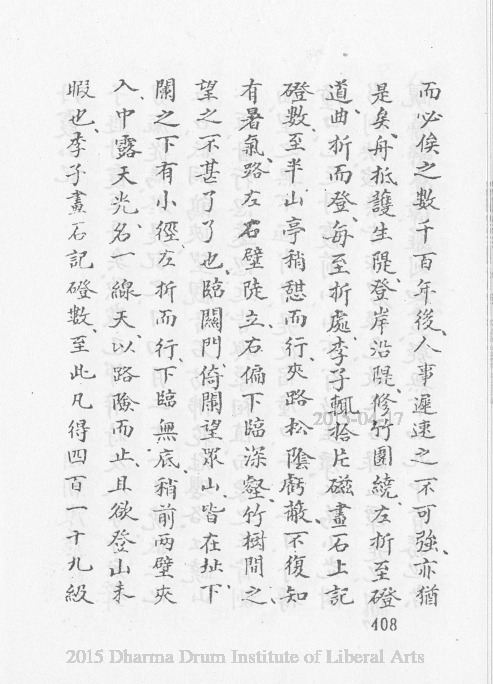 而必俟之數千百年後、人事遲速之不可強、亦猶
是矣、舟抵護生隄、登岸沿隄、修竹圍繞、左折至磴
道、曲折而登、每至折處、李子輒拾片磁畫石上記
磴數、至半山亭稍憩而行、夾路松陰虧蔽、不復知
有暑氣、路左右壁陡立、右偏下臨深壑、竹樹間之、
望之不甚了了也、臨關門、倚闌望眾山、皆在址下、
闌之下有小徑、左折而行、下臨無底、稍前兩壁夾
入、中露天光、名一線天、以路險而止、且欲登山未
暇也、李子畫石記磴數、至此凡得四百一十九級
408
2015 Dharma Drum Institute of Liberal Arts